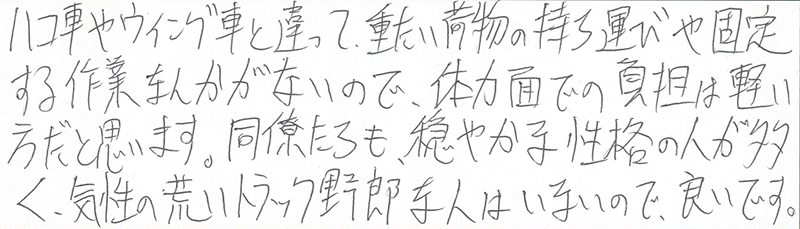 ハコ車やウィング車と違って、重たい荷物の持ち運びや固定
する作業なんかがないので、体力面での負担は軽い
方だと思います。同僚たちも、穏やかな性格の人が多
く、気性の荒いトラック野郎な人はいないので、良いです。